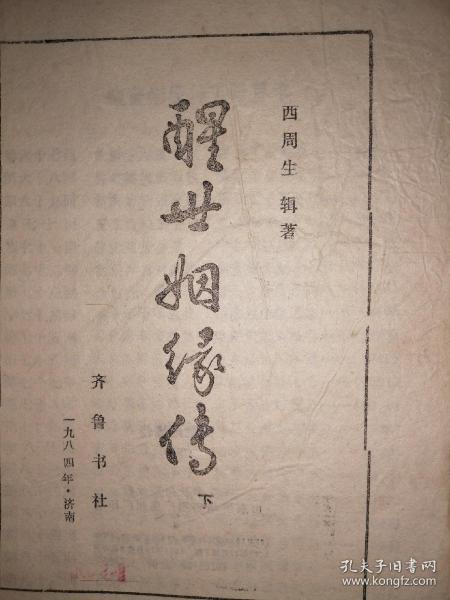 西周生 辑著
醒世姻缘传
下
齐鲁书社
一九八四年·济南
孔夫子旧书网
www.kongfz.com